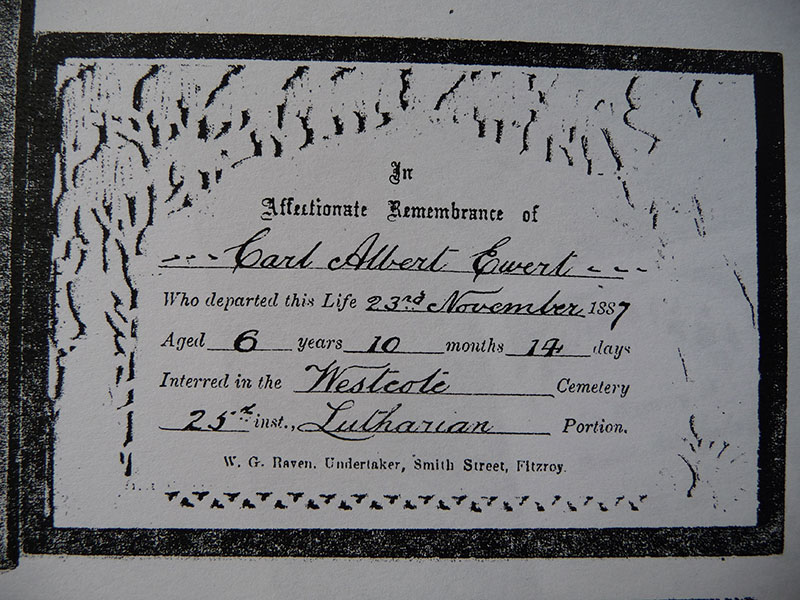 In
Affectionate Remembrance of
Carl Albert Ewert
Who departed this Life 23rd November 1887
Aged 6 years 10 months 14 days
Interred in the Westcote Cemetery
25th inst., Lutharian Portion.
W. G. Raven. Undertaker, Smith Street, Fitzroy.